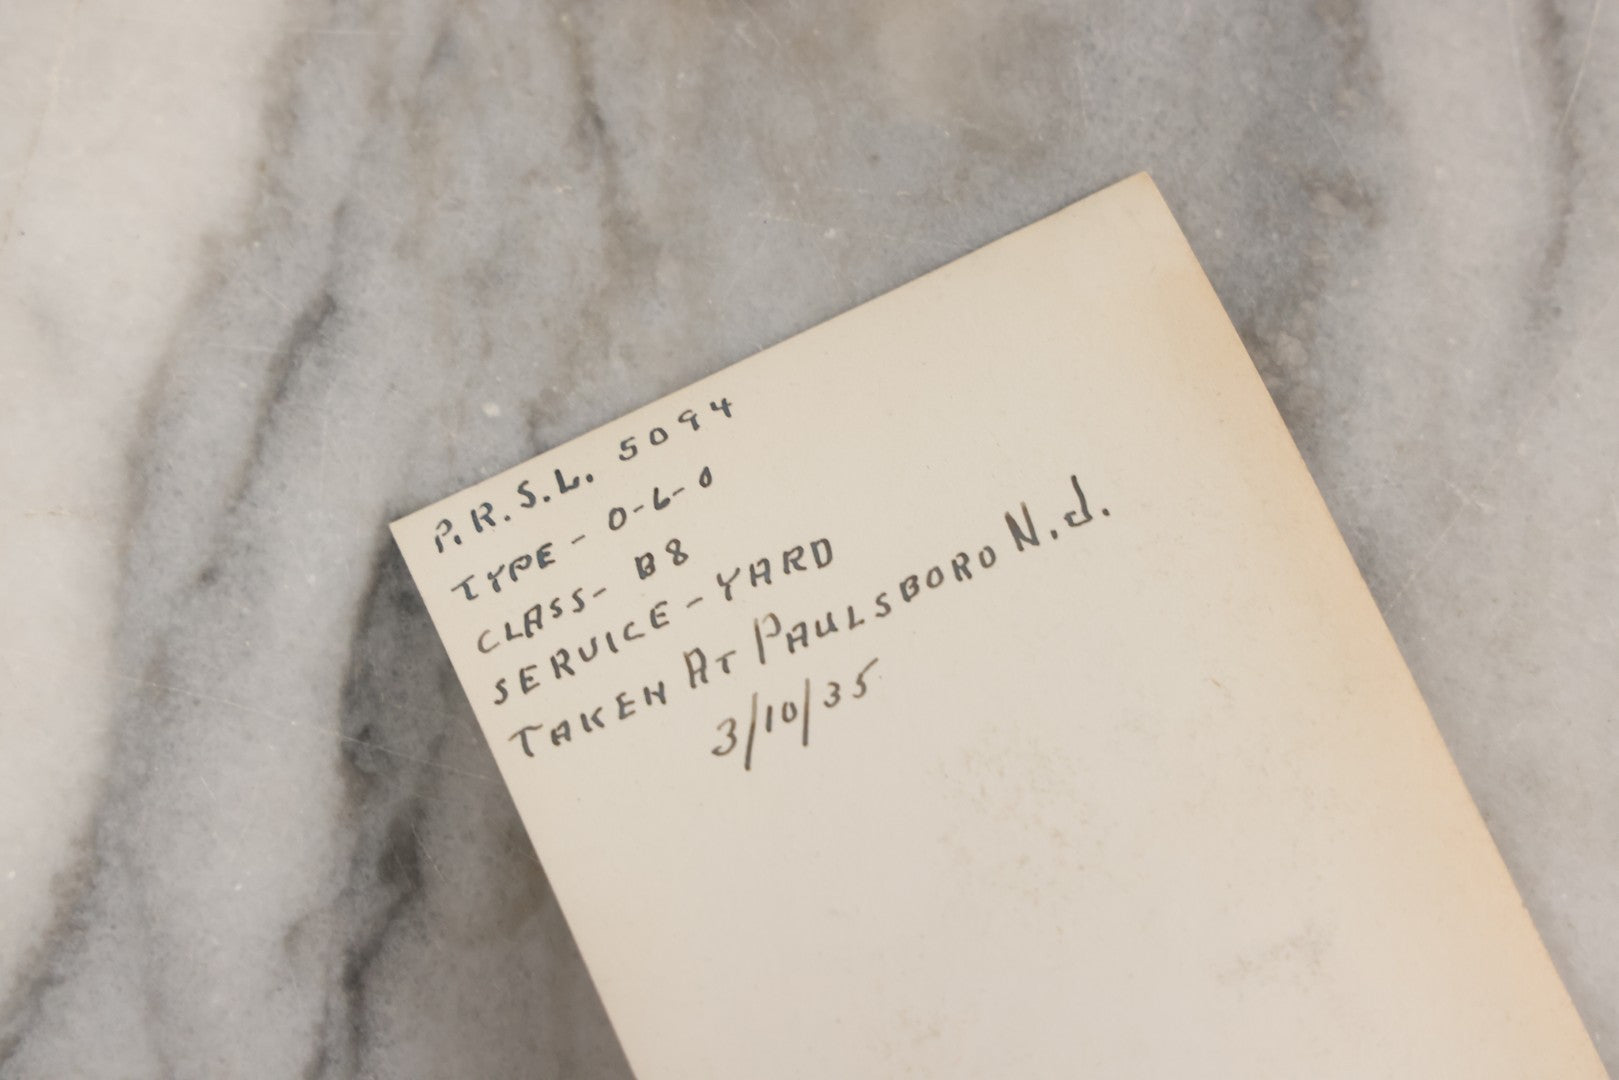 P.R.S.L. 5094
TYPE - 0-6-0
CLASS - B8
SERVICE - YARD
TAKEN AT PAULSBORO N.J.
3/10/35